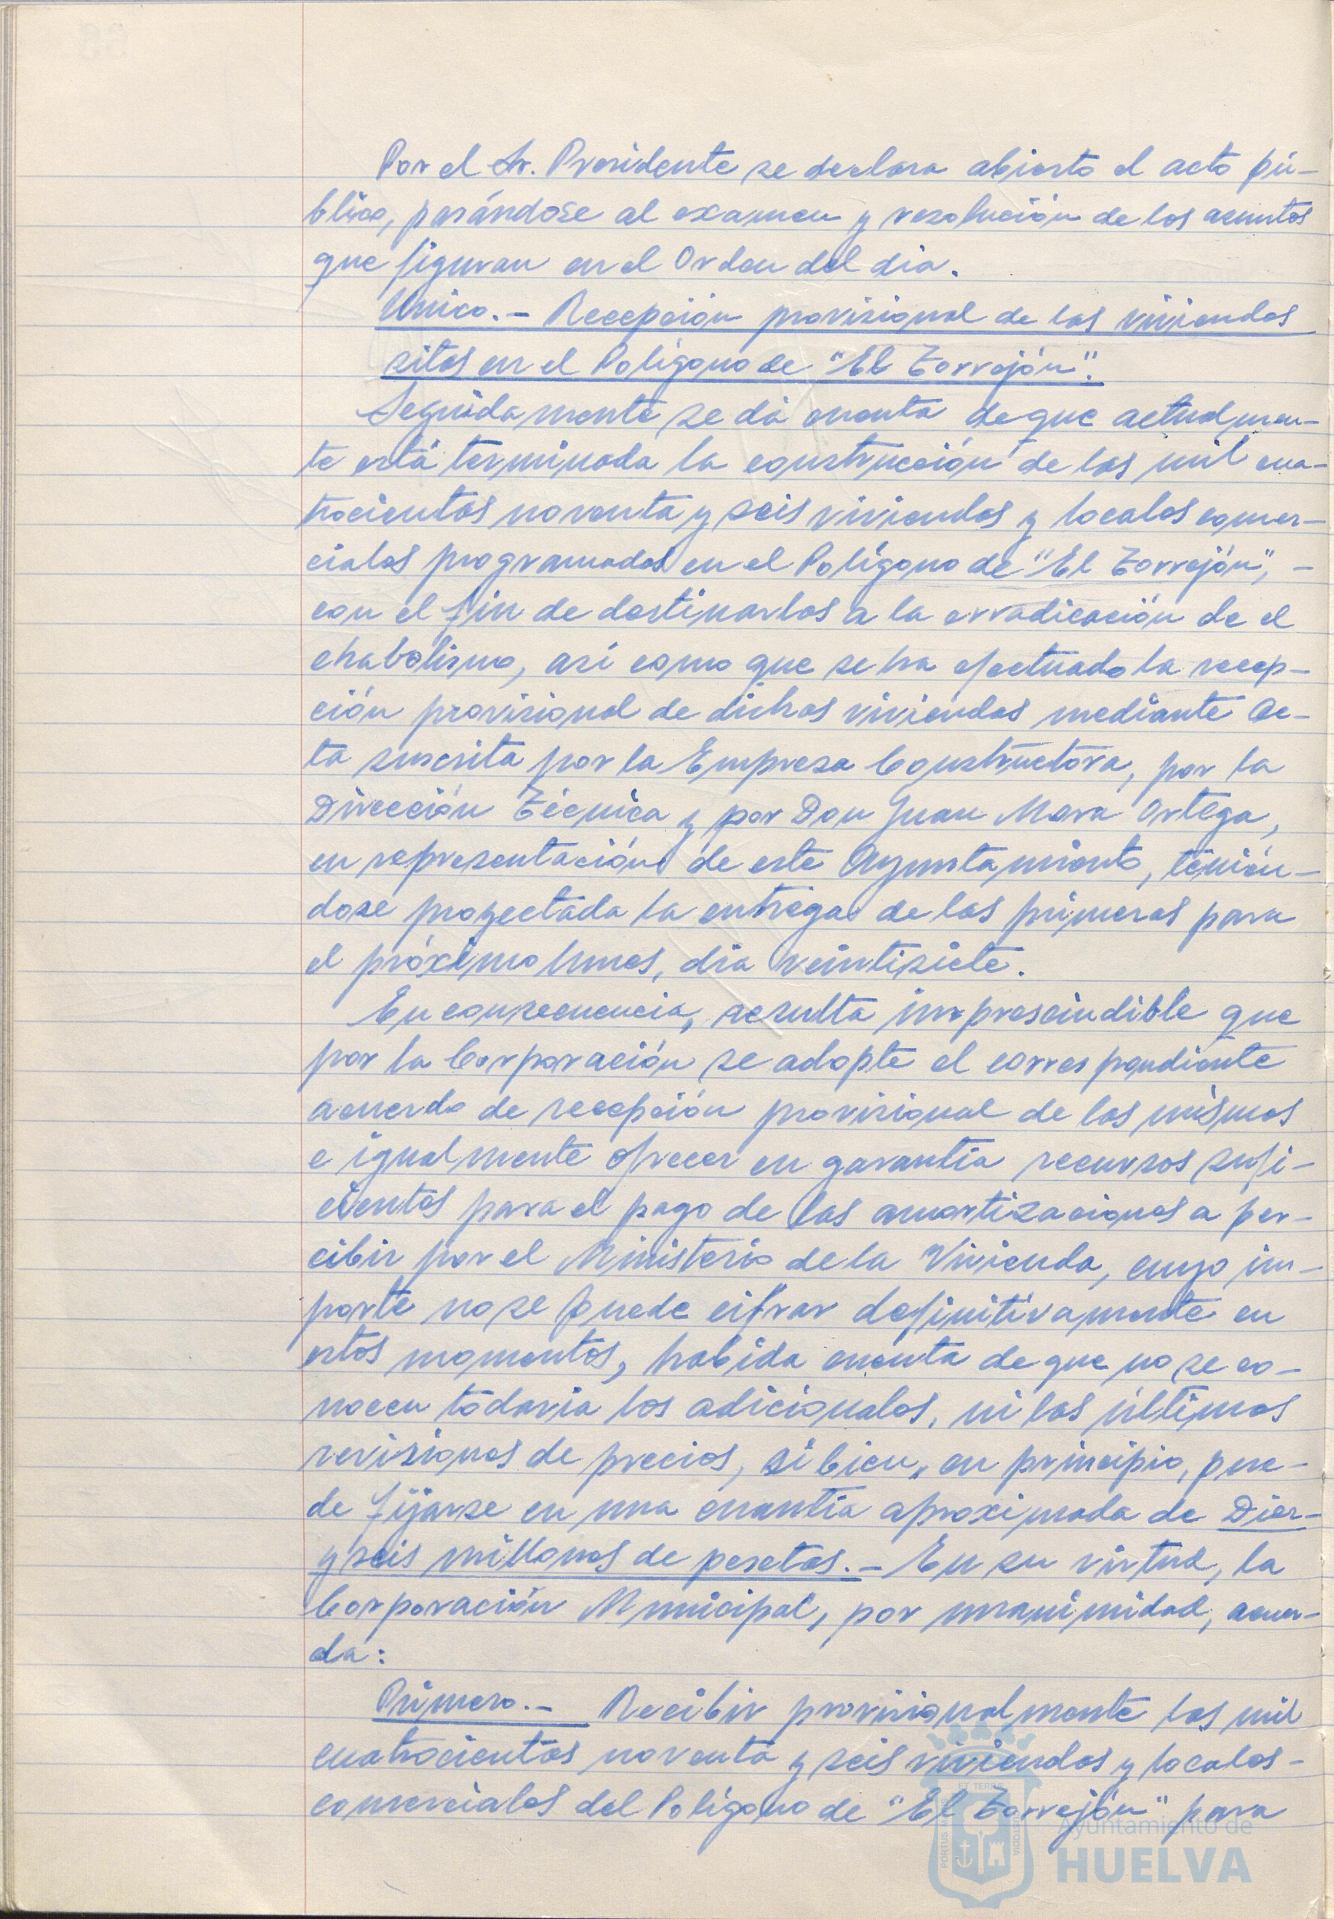 Por el Sr. Presidente se declara abierto el acto pú-
blico, pasándose al examen y resolución de los asuntos
que figuran en el Orden del dia.
Unico.- Recepción provisional de las viviendas
sitas en el Polígono de "El Torrejón".
Seguidamente se dá cuenta de que actualmen-
te está terminada la construcción de las mil cua-
trocientas noventa y seis viviendas y locales comer-
ciales programados en el Polígono de "El Torrejón", -
con el fin de destinarlos a la erradicación de el
chabolismo, asi como que se ha efectuado la recep-
ción provisional de dichas viviendas mediante Ac-
ta suscrita por la Empresa Constructora, por la
Dirección Técnica y por Don Juan Mora Ortega,
en representación de este Ayuntamiento, tenién-
dose proyectada la entrega de las primeras para
el próximo lunes, dia veintisiete.
En consecuencia, resulta imprescindible que
por la Corporación se adopte el correspondiente
acuerdo de recepción provisional de las mismas
e igualmente ofrecer en garantía recursos sufi-
cientes para el pago de las amortizaciones a per-
cibir por el Ministerio de la Vivienda, cuyo im-
porte no se puede cifrar definitivamente en
estos momentos, habida cuenta de que no se co-
nocen todavia los adicionales, ni las últimas
revisiones de precios, si bien, en principio, pue-
de fijarse en una cuantía aproximada de Diez-
y seis millones de pesetas.- En su virtud, la
Corporación Municipal, por unanimidad, acuer-
da:
Primero.- Recibir provisionalmente las mil
cuatrocientas noventa y seis viviendas y locales-
comerciales del Polígono de "El Torrejón" para
Ayuntamiento de
HUELVA